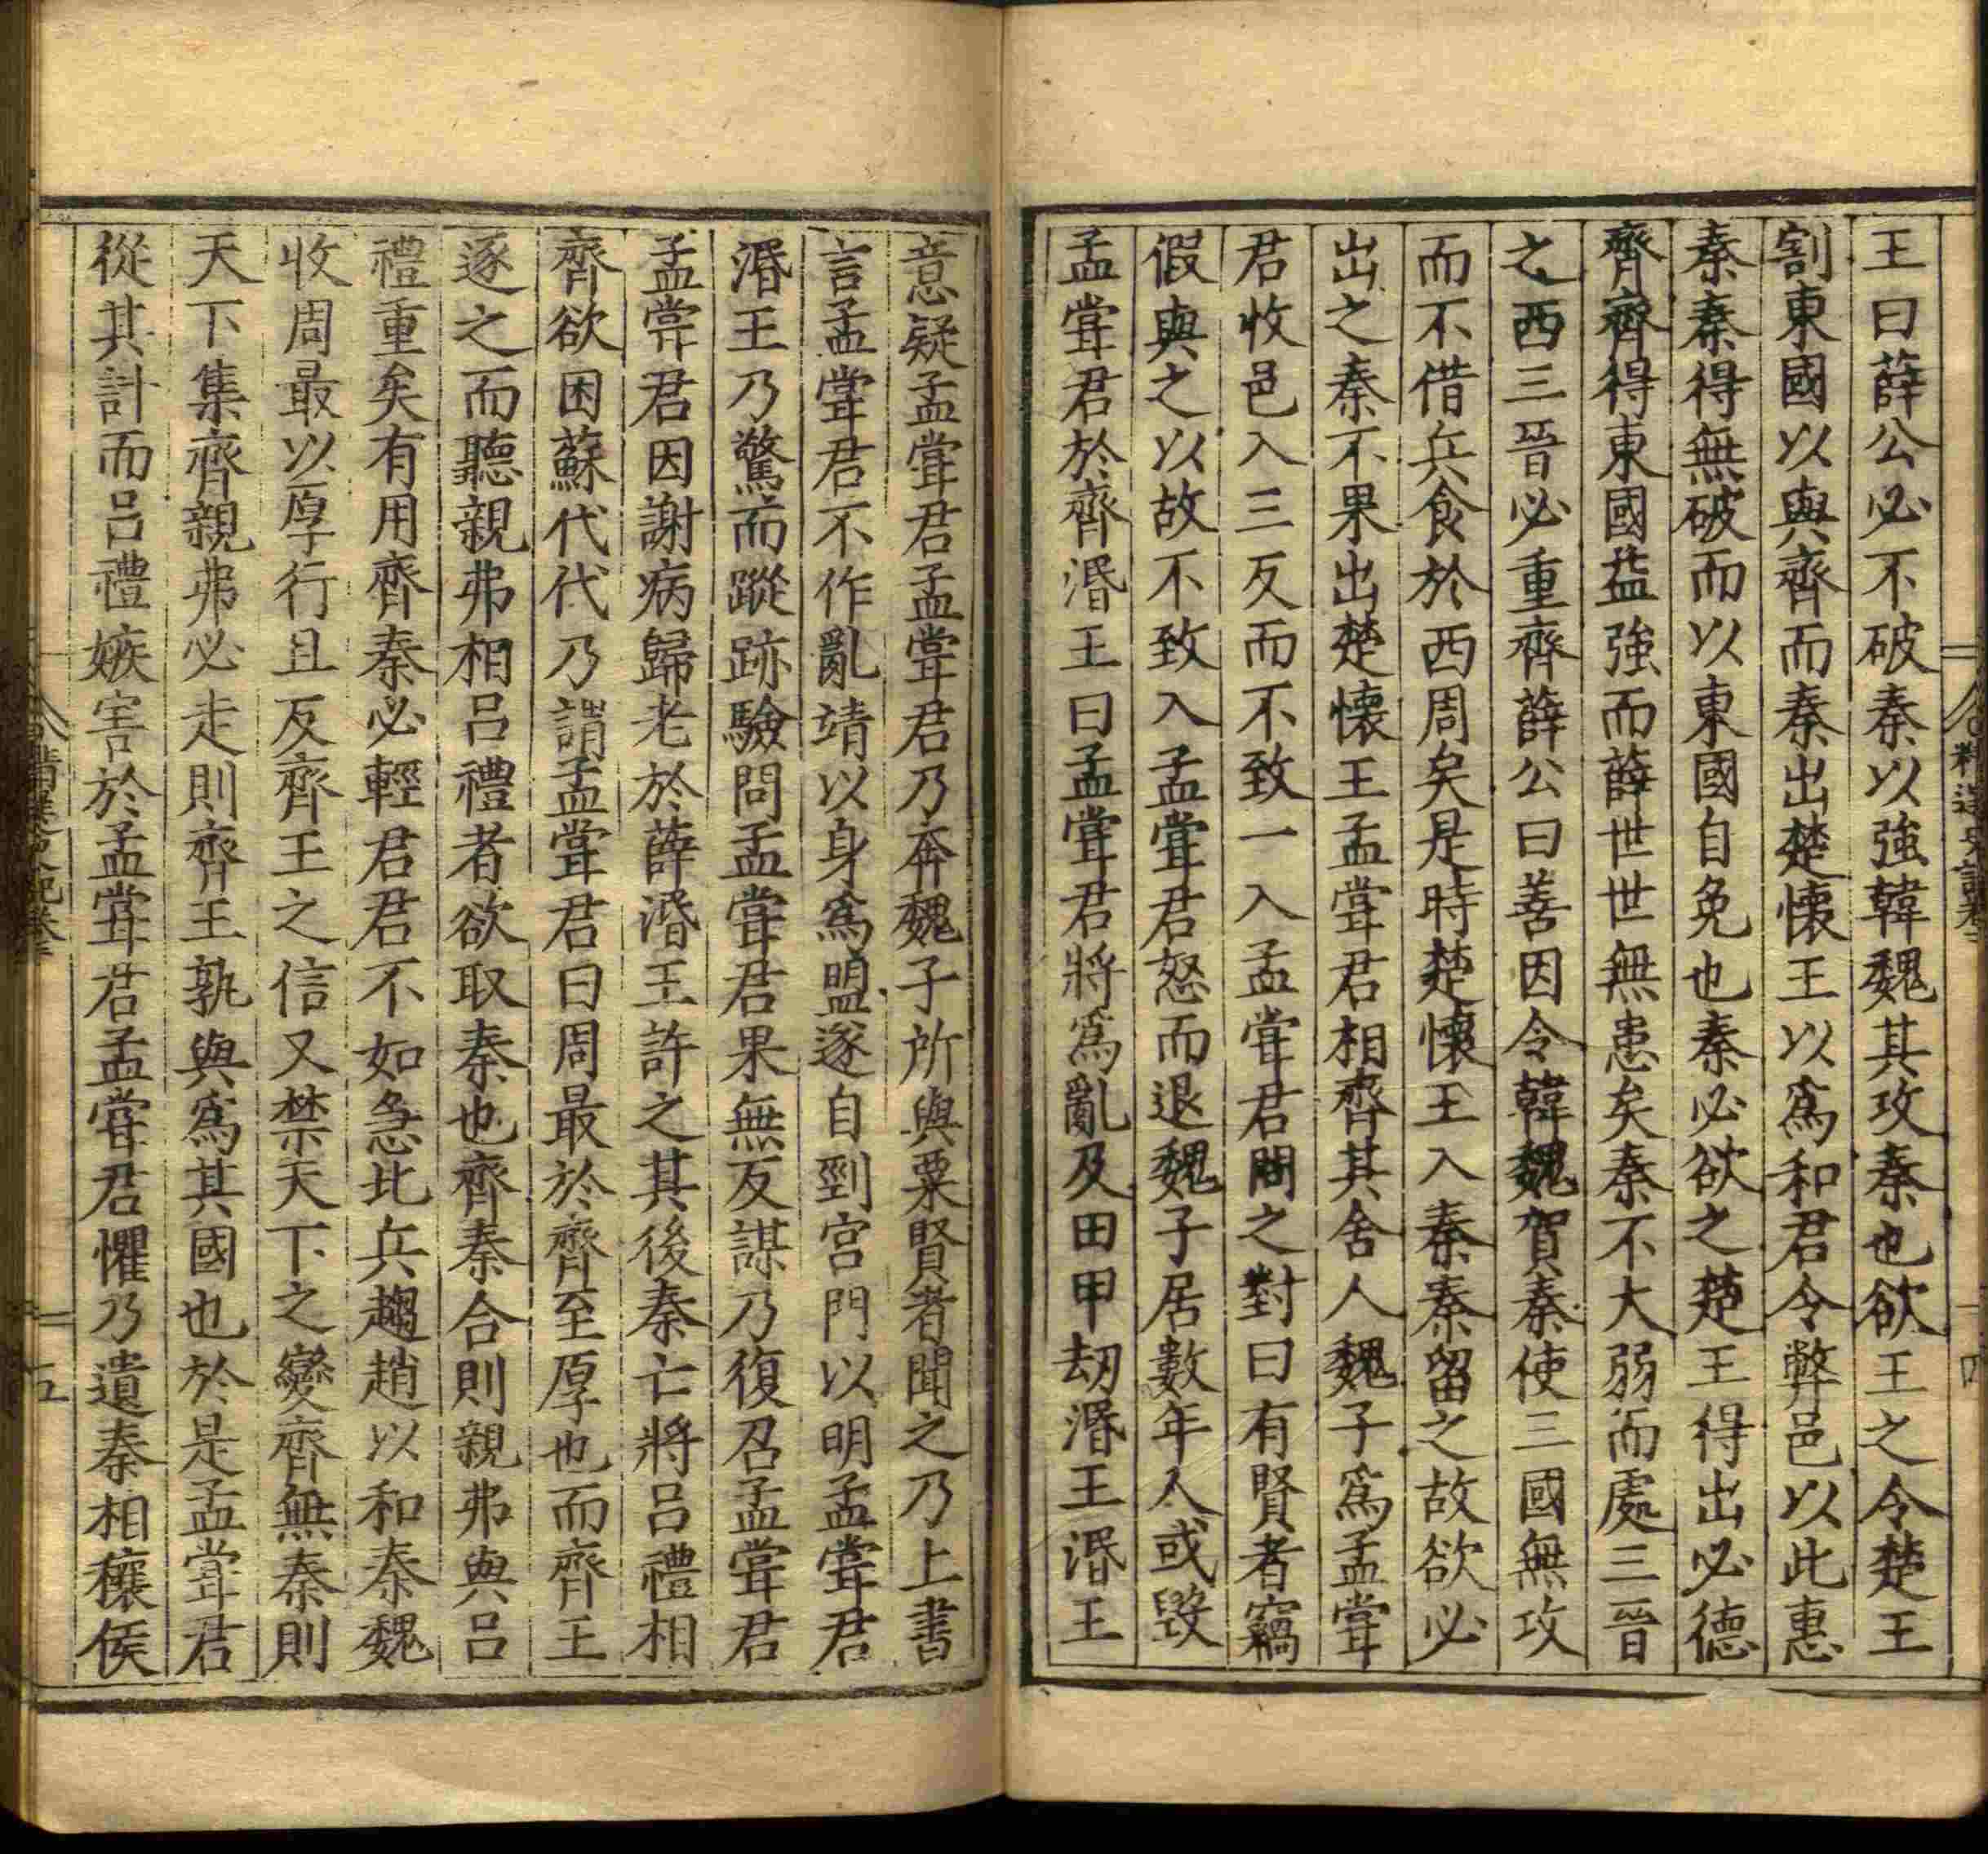 王曰薛公必不破秦以強韓魏其攻秦也欲王之令楚王
割東國以與齊而秦出楚懷王以爲和君令弊邑以此惠
秦秦得無破而以東國自免也秦必欲之楚王得出必德
齊齊得東國益強而薛世世無患矣秦不大弱而處三晉
之西三晉必重齊薛公曰善因令韓魏賀秦使三國無攻
而不借兵食於西周矣是時楚懷王入秦秦留之故欲必
出之秦不果出楚懷王孟嘗君相齊其舍人魏子爲孟嘗
君收邑入三反而不致一入孟嘗君問之對曰有賢者竊
假與之以故不致入孟嘗君怒而退魏子居數年人或毀
孟嘗君於齊湣王曰孟嘗君將爲亂及田甲刼湣王湣王
意疑孟嘗君孟嘗君乃奔魏子所與粟賢者聞之乃上書
言孟嘗君不作亂靖以身爲盟遂自剄宮門以明孟嘗君
湣王乃驚而蹤跡驗問孟嘗君果無反謀乃復召孟嘗君
孟嘗君因謝病歸老於薛湣王許之其後秦亡將呂禮相
齊欲困蘇代代乃謂孟嘗君曰周最於齊至厚也而齊王
逐之而聽親弗相呂禮者欲取秦也齊秦合則親弗與呂
禮重矣有用齊秦必輕君君不如急北兵趨趙以和秦魏
收周最以厚行且反齊王之信又禁天下之變齊無秦則
天下集齊親弗必走則齊王孰與爲其國也於是孟嘗君
從其計而呂禮嫉害於孟嘗君孟嘗君懼乃遺秦相穰侯
五